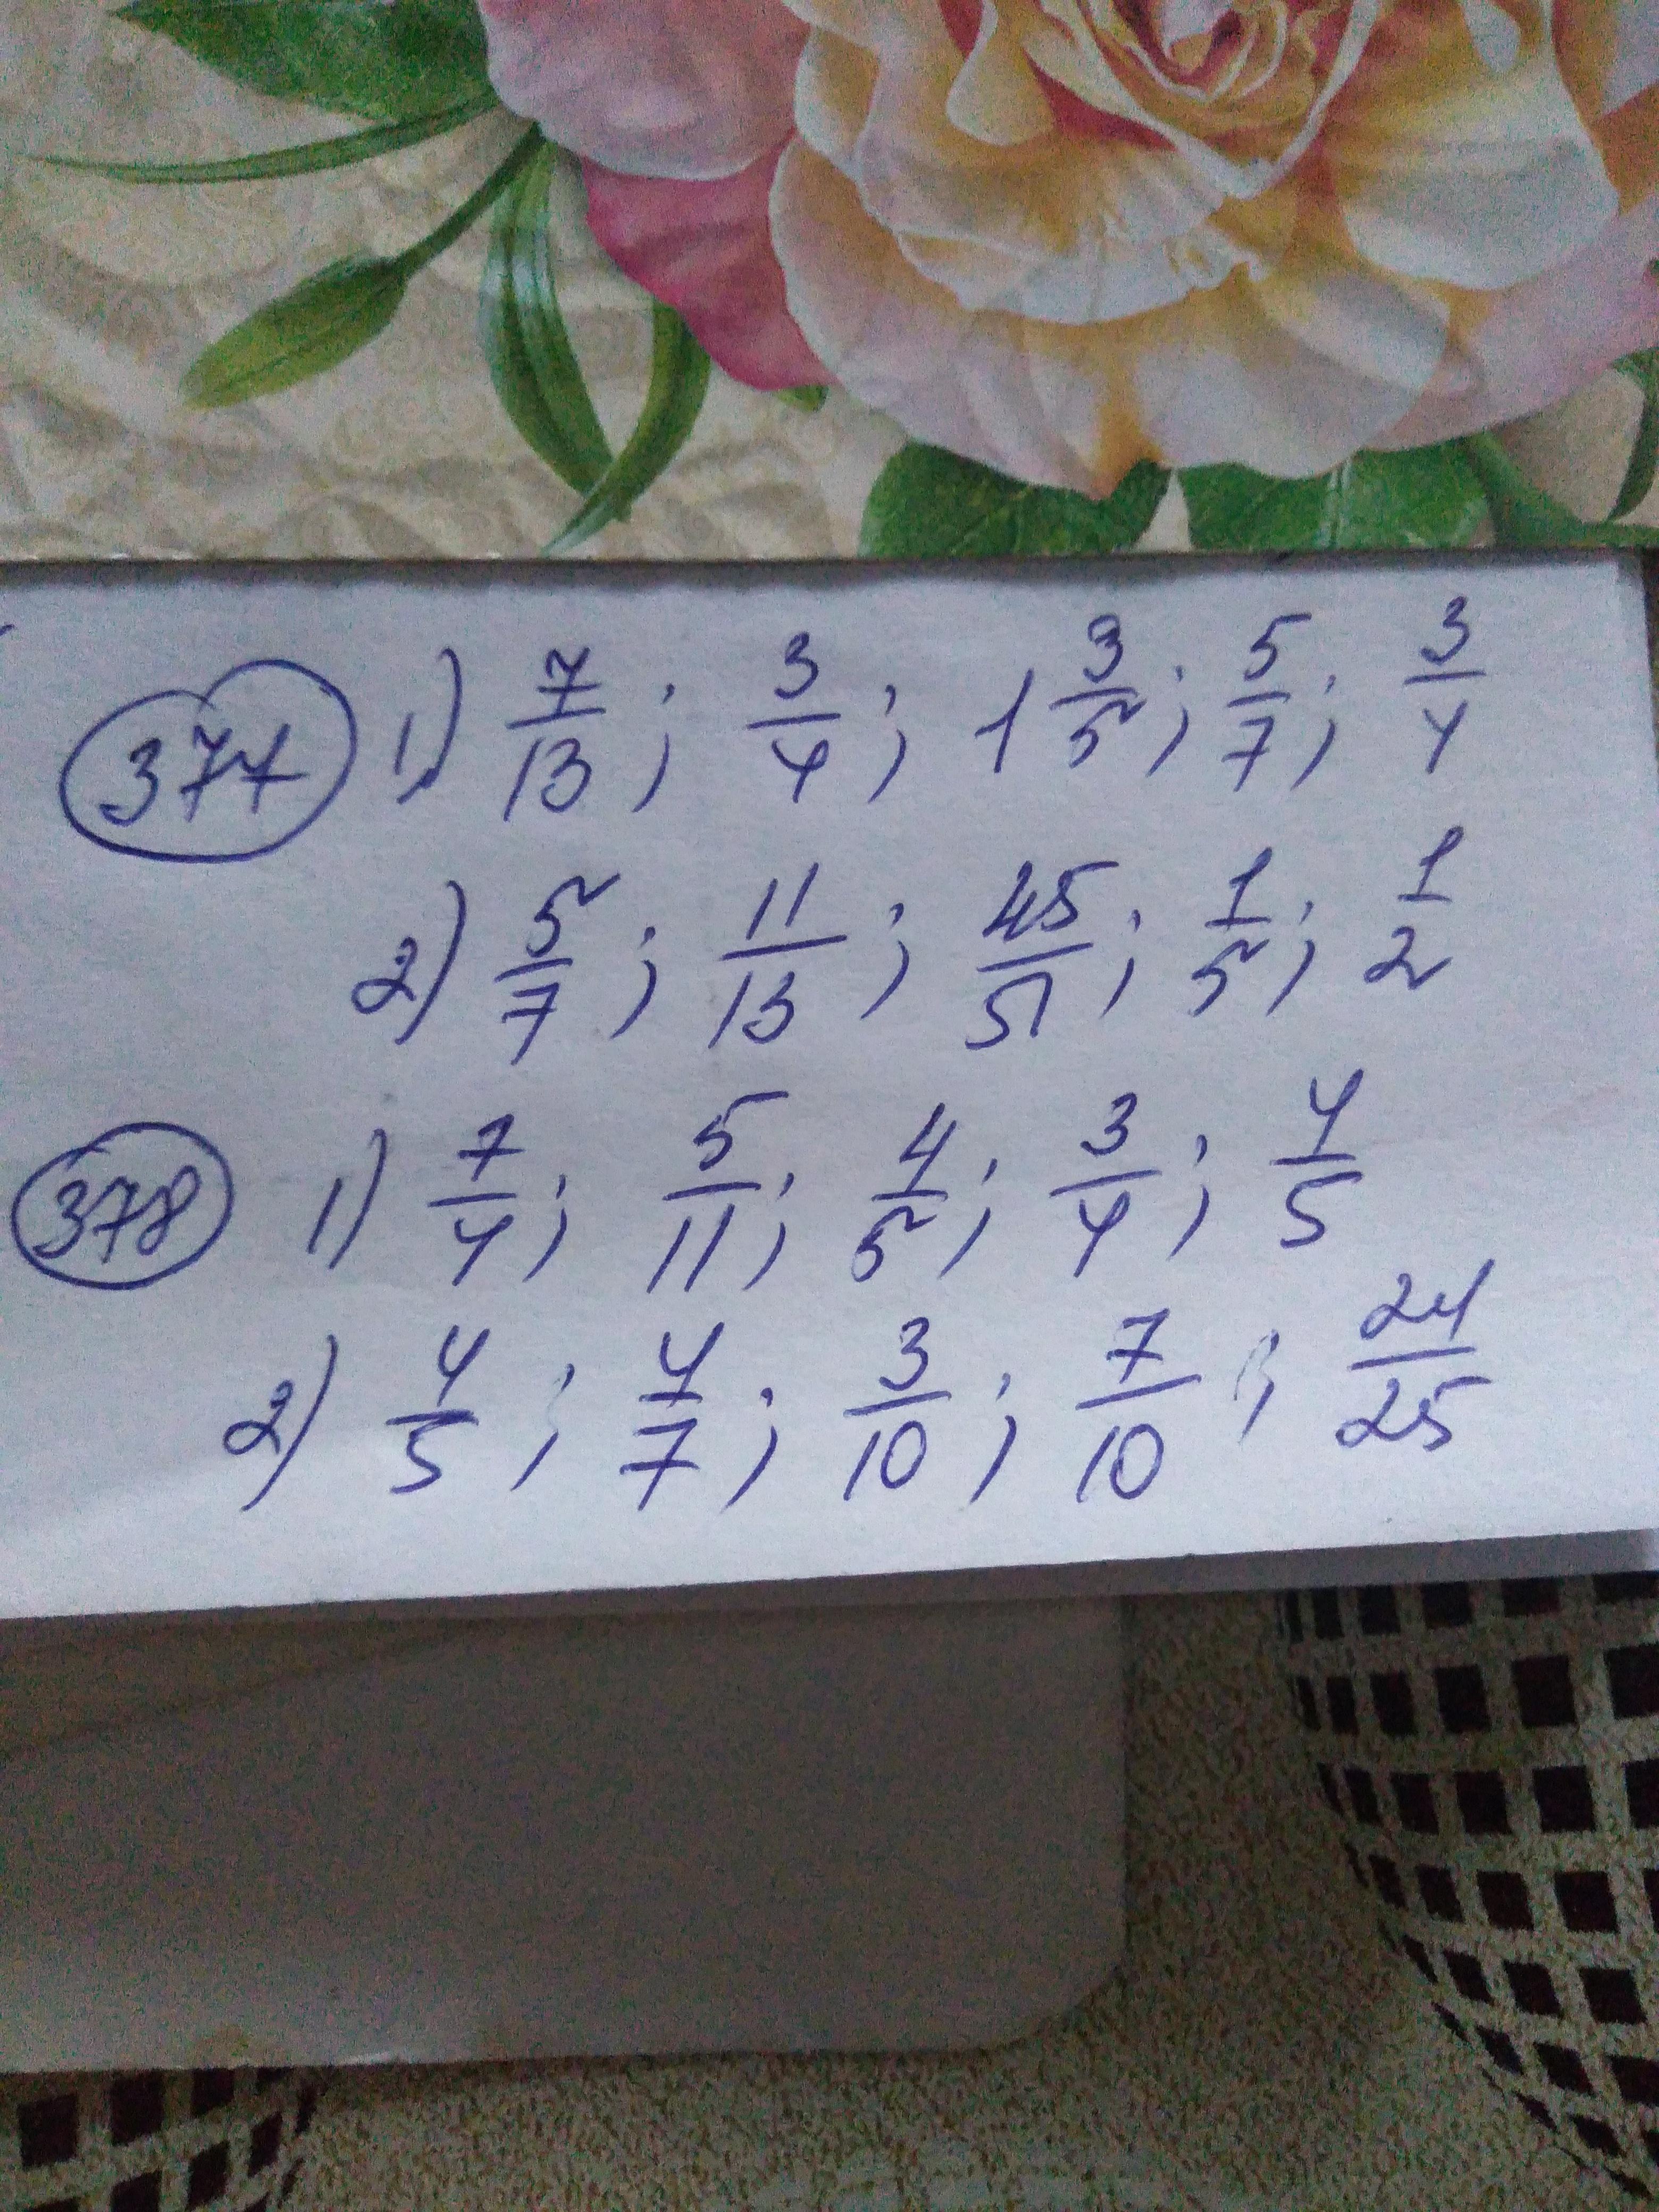 377 1) 7/13; 3/4; 1 3/5; 5/7; 3/4
2) 5/7; 11/13; 45/51; 1/5; 1/2
378 1) 7/4; 5/11; 4/5; 3/4; 4/5
2) 4/5; 4/7; 3/10; 7/10; 24/25